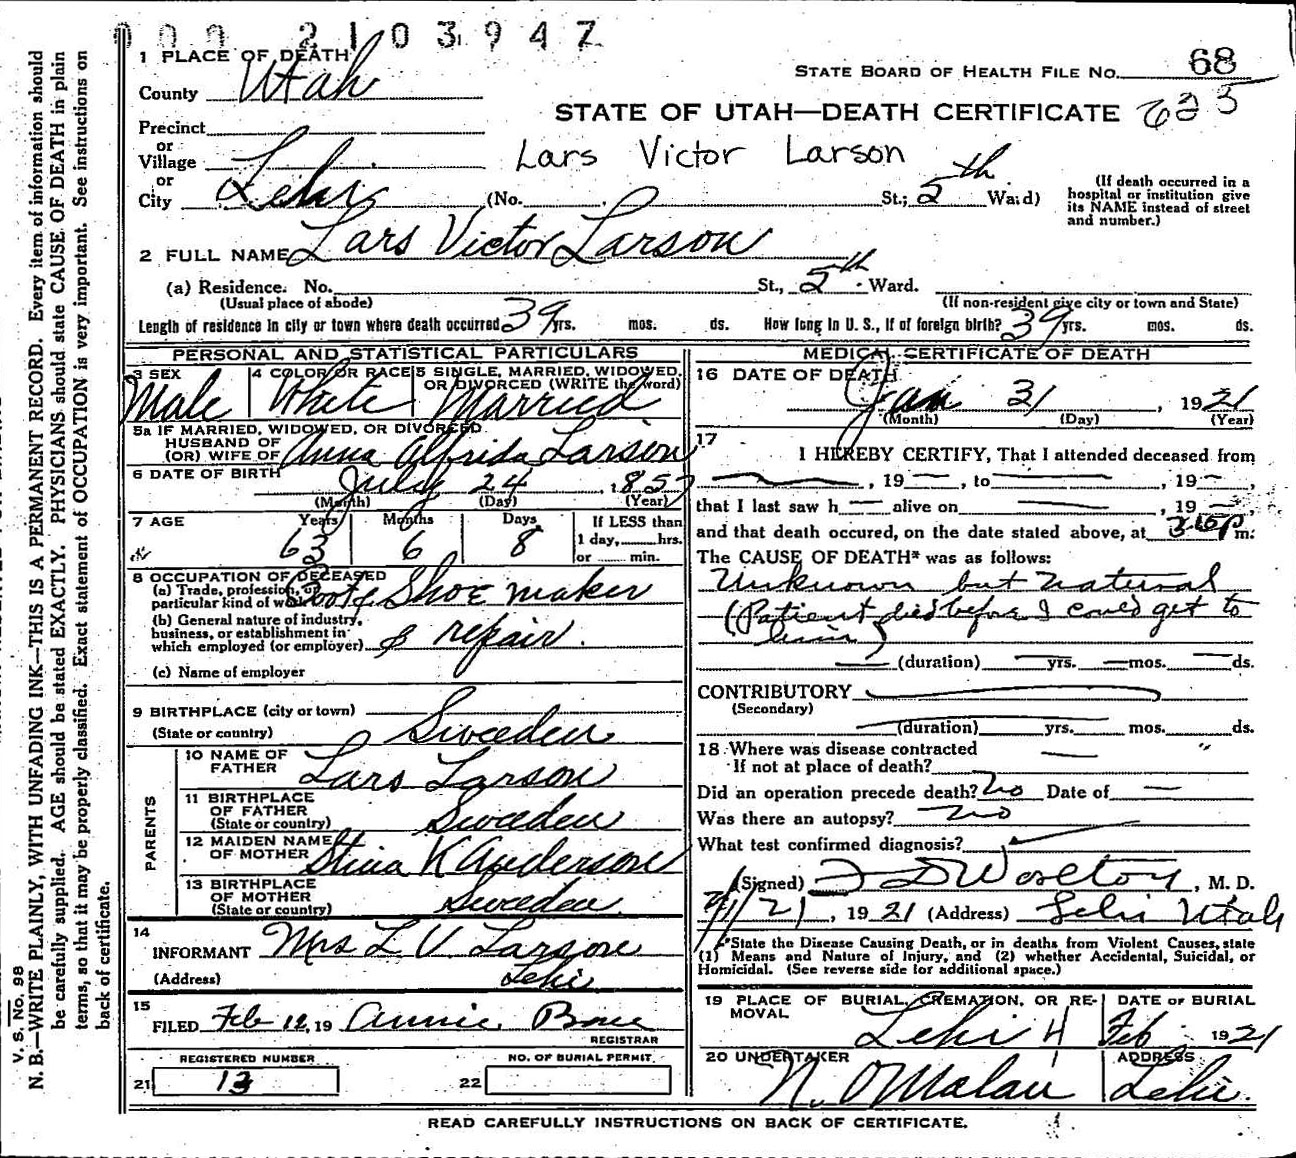 000 2103947
1 PLACE OF DEATH
County Utah
STATE BOARD OF HEALTH FILE NO. 68
STATE OF UTAH—DEATH CERTIFICATE 625
Precinct
or
Village
or
City Lehi (No. St.; 5th Ward)
Lars Victor Larson
(If death occurred in a
hospital or institution give
its NAME instead of street
and number.)
2 FULL NAME Lars Victor Larson
(a) Residence. No. St., 5th Ward.
(Usual place of abode) (If non-resident give city or town and State)
Length of residence in city or town where death occurred 39 yrs. mos. ds. How long in U. S., if of foreign birth? 39 yrs. mos. ds.
PERSONAL AND STATISTICAL PARTICULARS
3 SEX 4 COLOR OR RACE 5 SINGLE, MARRIED, WIDOWED,
OR DIVORCED (WRITE the word)
Male White Married
5a IF MARRIED, WIDOWED, OR DIVORCED
HUSBAND OF
(OR) WIFE OF Anna Alfrida Larson
6 DATE OF BIRTH July 24, 1857
(Month) (Day) (Year)
7 AGE Years Months Days If LESS than
1 day,......hrs.
or ...... min.
63 6 8
8 OCCUPATION OF DECEASED
(a) Trade, profession, or
particular kind of work Boot & Shoe maker
(b) General nature of industry,
business, or establishment in
which employed (or employer) & repair.
(c) Name of employer
9 BIRTHPLACE (city or town)
(State or country) Sweeden
PARENTS
10 NAME OF
FATHER Lars Larson
11 BIRTHPLACE
OF FATHER
(State or country) Sweeden
12 MAIDEN NAME
OF MOTHER Stina K Anderson
13 BIRTHPLACE
OF MOTHER
(State or country) Sweeden
14
INFORMANT Mrs L V Larson
(Address) Lehi
15
FILED Feb 12, 19 Annie
REGISTRAR
REGISTERED NUMBER NO. OF BURIAL PERMIT
21 13 22
MEDICAL CERTIFICATE OF DEATH
16 DATE OF DEATH
Jan 31, 1921
(Month) (Day) (Year)
17
I HEREBY CERTIFY, That I attended deceased from
—, 19 —, to —, 19 —,
that I last saw h — alive on —, 19 —,
and that death occured, on the date stated above, at m.
The CAUSE OF DEATH* was as follows:
Unknown but natural
(Patient died before I could get to
him)
(duration) yrs. mos. ds.
CONTRIBUTORY
(Secondary)
(duration) yrs. mos. ds.
18 Where was disease contracted
If not at place of death?
Did an operation precede death? No Date of —
Was there an autopsy? No
What test confirmed diagnosis?
(Signed) M. D.
21, 1921 (Address) Lehi Utah
*State the Disease Causing Death, or in deaths from Violent Causes, state
(1) Means and Nature of Injury, and (2) whether Accidental, Suicidal, or
Homicidal. (See reverse side for additional space.)
19 PLACE OF BURIAL, CREMATION, OR RE-
MOVAL DATE OF BURIAL
Lehi 4 Feb 1921
20 UNDERTAKER ADDRESS
Lehi.
READ CAREFULLY INSTRUCTIONS ON BACK OF CERTIFICATE.
V. S. No. 98
N. B.—WRITE PLAINLY, WITH UNFADING INK—THIS IS A PERMANENT RECORD. Every item of information should
be carefully supplied. AGE should be stated EXACTLY. PHYSICIANS should state CAUSE OF DEATH in plain
terms, so that it may be properly classified. Exact statement of OCCUPATION is very important. See instructions on
back of certificate.